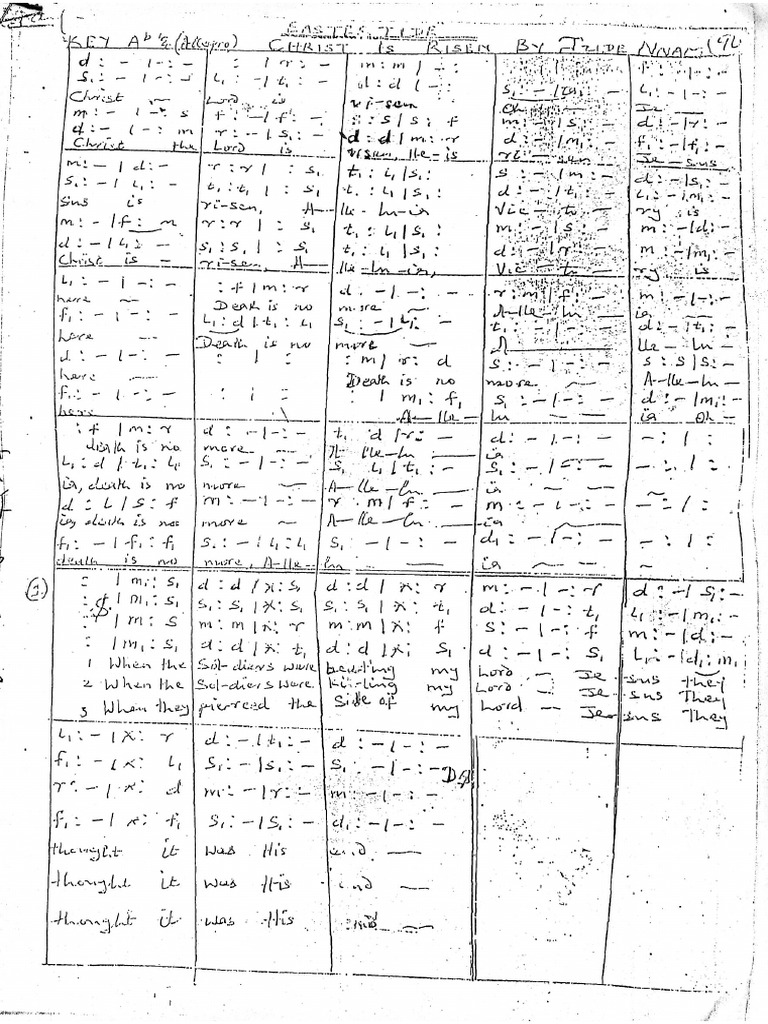 EASTER TIDE
KEY Ab 4/4 (Allegro) CHRIST IS RISEN BY JZIDE NNAM (96
d : - | - : - : | r : - m : m | - : : - | - : - f : - | - : -
s₁ : - | - : - l₁ : - | t₁ : - d : d | - : s₁ : - | ta₁ : - l₁ : - | - : -
Christ — Lord is ri-sen Oh — Je —
m : - | - : s f : - | f : - s : s | s : f m : - | s : - d : - | r : -
d : - | - : m r : - | s₁ : - d : d | m : r d : - | m : - f₁ : - | f₁ : -
Christ the Lord is risen, He-is ri — sen Je-sus
m : - | d : - r : r | : s₁ t₁ : l₁ | s₁ : s : - | m : - d : - | s₁ : -
s₁ : - | l₁ : - t₁ : t₁ | : s₁ t₁ : l₁ | s₁ : d : - | t₁ : - l₁ : - | m₁ : -
sus is ri-sen, A— lle-lu-ia Vic-to — ry is
m : - | f : m r : r | : s₁ t₁ : l₁ | s₁ : m : - | s : - m : - | d : -
d : - | l₁ : - s₁ : s₁ | : s₁ t₁ : l₁ | s₁ : d : - | r : - m : - | m₁ : -
Christ is — ri-sen, A— lle-lu-ia, Vic-to — ry is
l₁ : - | - : - : f | m : r d : - | - : - r : m | f : - m : - | - : -
here — Death is no more — A-lle-lu — ia —
f₁ : - | - : - l₁ : d | t₁ : l₁ s₁ : - | l₁ : - t₁ : - | - : - d : - | t₁ : -
here — Death is no more — A — lle-lu —
d : - | - : - : | : : m | r : d s : - | - : - s : s | s : -
here — Death is no more — A-lle-lu —
f₁ : - | - : - : | : : | m₁ : f₁ s₁ : - | - : - d : - | m₁ : -
here A-lle- lu — ia Oh —
: f | m : r d : - | - : - t₁ : d | r : - d : - | - : - - : | :
death is no more — A-lle-lu — ia
l₁ : d | t₁ : l₁ s₁ : - | - : - s₁ : l₁ | t₁ : - s₁ : - | - : - - : | :
ia, death is no more — A-lle-lu — ia — ~
d : l | s : f m : - | - : - r : m | f : - m : - | - : - - : | :
ia, death is no more — A-lle-lu — ia
f₁ : - | f₁ : f₁ s₁ : - | l₁ : l₁ s₁ : - | - : - d₁ : - | - : - - : | :
death is no more, A-lle- lu — ia — ~
(1.) : | m₁ : s₁ d : d | x : s₁ d : d | x : r m : - | - : r d : - | s₁ : -
: | m₁ : s₁ s₁ : s₁ | x : s₁ s₁ : s₁ | x : t₁ d : - | - : t₁ l₁ : - | m₁ : -
: | m : s m : m | x : r m : m | x : f s : - | - : f m : - | d : -
: | m₁ : s₁ d : d | x : t₁ d : d | x : s₁ d : - | - : s₁ l₁ : - | d₁ : m₁
1 When the Sol-diers were beating my Lord — Je- sus they
2 When the Sol-diers were killing my Lord — Je- sus They
3 When they pierced the Side of my Lord — Je- sus They
l₁ : - | x : r d : - | t₁ : - d : - | - : -
f₁ : - | x : l₁ s₁ : - | s₁ : - s₁ : - | - : - D.S
r : - | x : d m : - | r : - m : - | - : -
f₁ : - | x : f₁ s₁ : - | s₁ : - d₁ : - | - : -
thought it was His end —
thought it was His end —
thought it was His end —